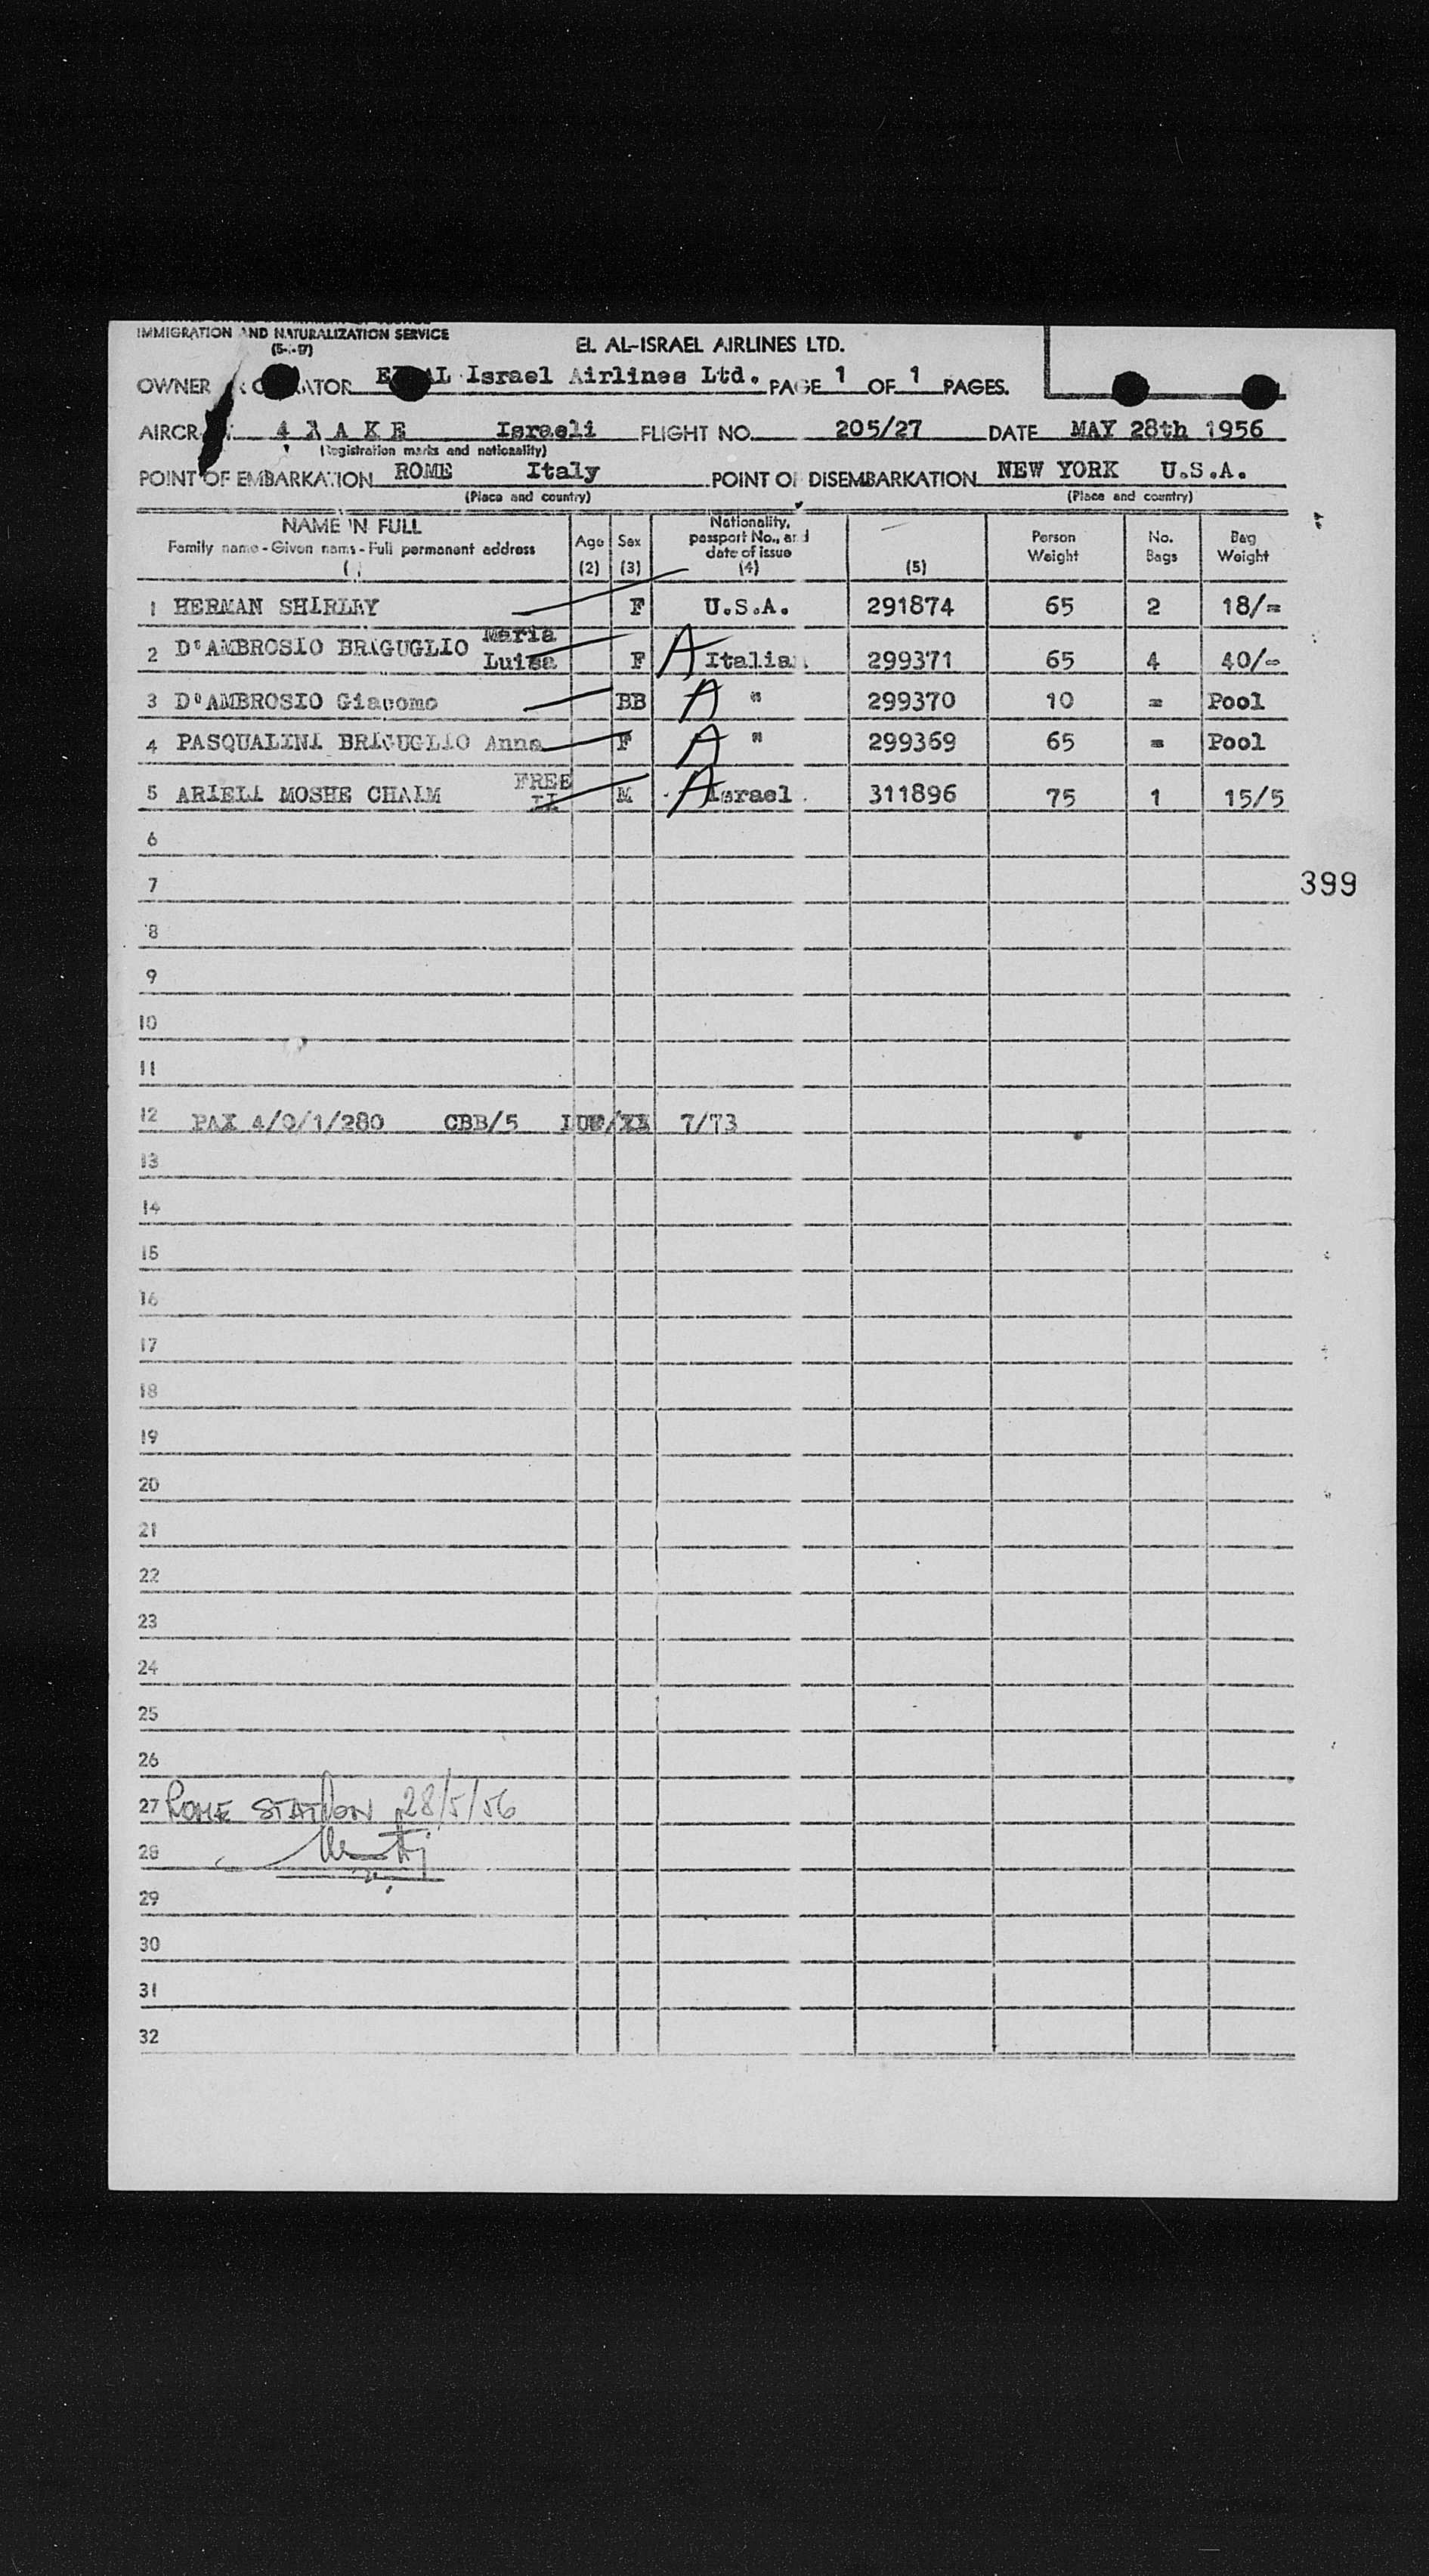 IMMIGRATION AND NATURALIZATION SERVICE
EL AL-ISRAEL AIRLINES LTD.
OWNER OR OPERATOR EL AL Israel Airlines Ltd. PAGE 1 OF 1 PAGES.
AIRCRAFT 4 X A K E Israeli FLIGHT NO. 205/27 DATE MAY 28th 1956
(Registration marks and nationality)
POINT OF EMBARKATION ROME Italy POINT OF DISEMBARKATION NEW YORK U.S.A.
(Place and country) (Place and country)
NAME IN FULL
Family name - Given name - Full permanent address
Age (2)
Sex (3)
Nationality, passport No., and date of issue (4)
(5)
Person Weight
No. Bags
Bag Weight
1 HERMAN SHIRLEY F U.S.A. 291874 65 2 18/=
2 D'AMBROSIO BRAGUGLIO Maria Luisa F A Italian 299371 65 4 40/=
3 D'AMBROSIO Giacomo BB A " 299370 10 = Pool
4 PASQUALINI BRAGUGLIO Anna F A " 299369 65 = Pool
5 ARIELI MOSHE CHAIM FREE M A Israel 311896 75 1 15/5
6
7
399
8
9
10
11
12 PAX 4/0/1/280 CBB/5 7/73
13
14
15
16
17
18
19
20
21
22
23
24
25
26
27 ROME STATION 28/5/56
28
29
30
31
32